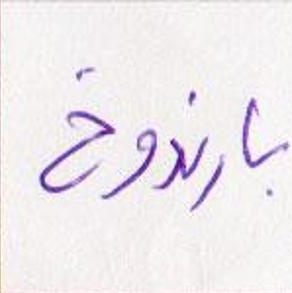 بارندوخ